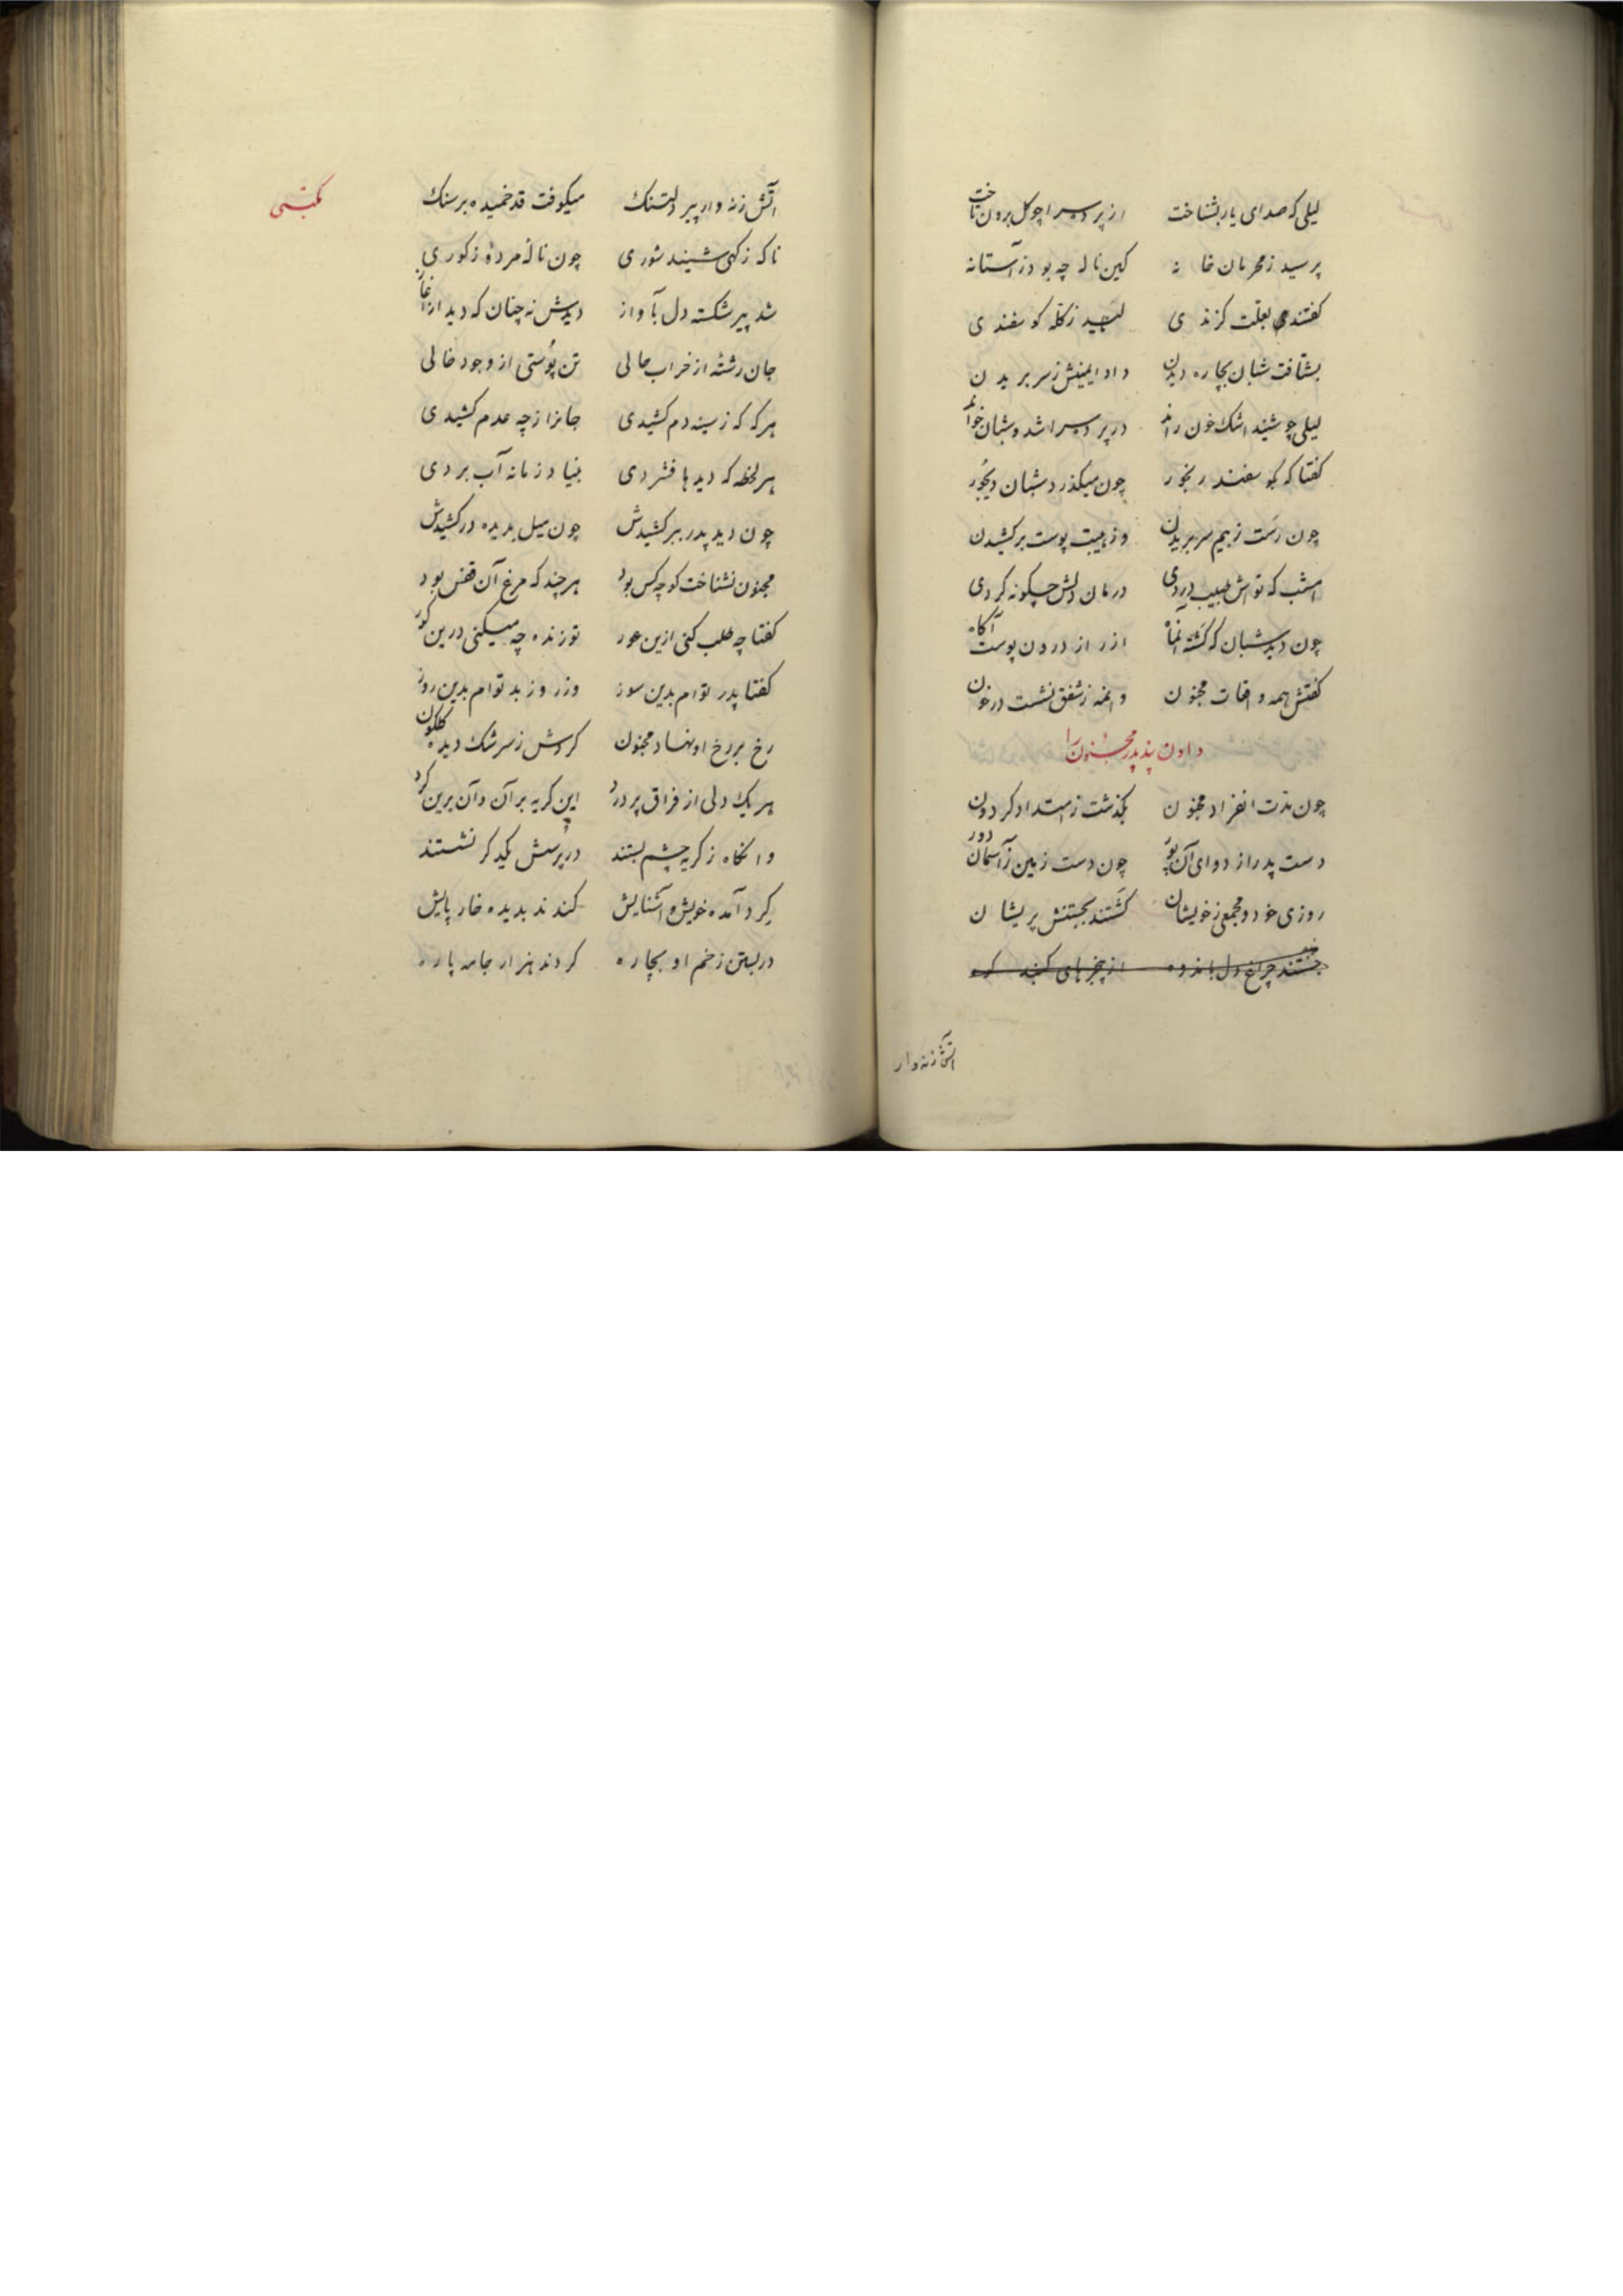 لیلی که صدای یار بشناخت از پرده سرا چو کل برون تاخت
پرسید ز محرمان خانه کین ناله چه بود ز آستانه
کفتند بعلت کزندی ز کله کوسفندی
بشتافت شبان بچاره دیدن داد ایمنیش ز سر بریدن
لیلی چو شنید اشک خون راند در پرده سرا شد و شبان خواند
کفتا که کوسفند رنجور چون میکذرد شبان دیجور
چون رست ز بیم سر بریدن وز هیبت پوست برکشیدن
امشب که تواش طبیب دردی درمان دلش چکونه کردی
چون دید شبان که کشته آنماه از راز درون پوست آکاه
کفتش همه واقعات مجنون وانمه ز شفق نشست در خون
دادن پند پدر مجنون را
چون مدت انفراد مجنون بکذشت ز امتداد کردون
دست پدر از دوای آن پور چون دست زمین ز آسمان دور
روزی خود و مجمعی ز خویشان کشتند بجستنش پریشان
جستند چراغ دل از های
آتش زنه وار
مکتبی
آتش زنه وار پیر دلتنک میکوفت قد خمیده بر سنک
ناکه ز کهی شنید شوری چون نالهٔ مردهٔ ز کوری
شد پیر شکسته دل بآواز دیدش نه چنان که دید از آغاز
جان رشتهٔ از خراب حالی تن پوستی از وجود خالی
هر که که ز سینه دم کشیدی جانرا ز چه عدم کشیدی
هر لحظه که دیدها فشردی بنیاد زمانه آب بردی
چون دید پدر ببر کشیدش چون میل بدیده در کشیدش
مجنون نشناخت کو چه کس بود هر چند که مرغ آن قفس بود
کفتا چه طلب کنی ازین عور تو زنده چه میکنی درین کور
کفتا پدر توام بدین سوز وز روز بد توام بدین روز
رخ بر رخ او نهاد مجنون کردش ز سرشک دیده کلکون
هر یک دلی از فراق پر درد این کریه بر آن و آن برین کرد
وانکاه ز کریه چشم بستند در پرسش یکدکر نشستند
کرد آمده خویش و آشنایش کندند بدیده خار پایش
در بستن زخم او بچاره کردند هزار جامه پاره